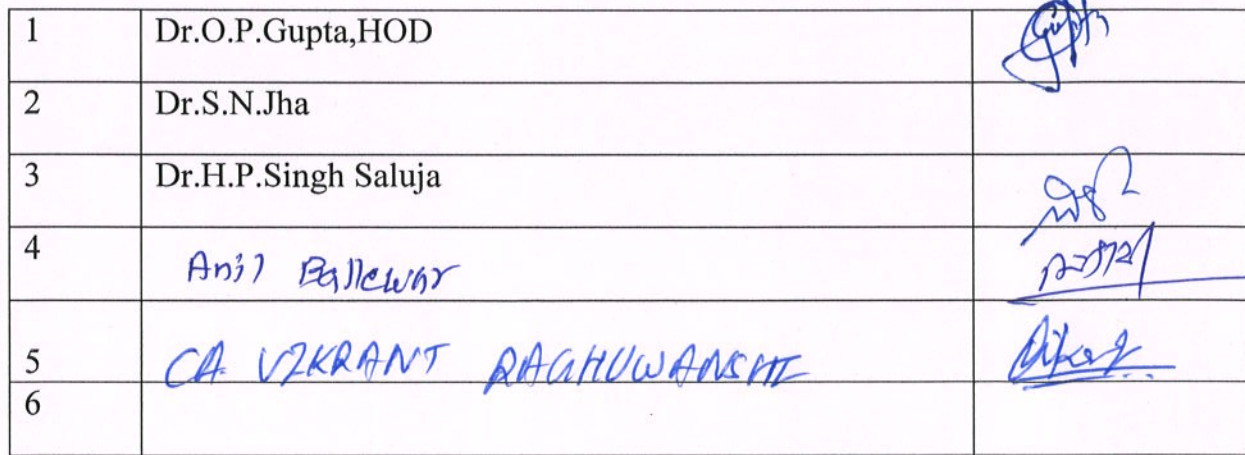 1 Dr.O.P.Gupta,HOD
2 Dr.S.N.Jha
3 Dr.H.P.Singh Saluja
4 Anil Ballewar
5 CA. VIKRANT RAGHUWANSHI
6